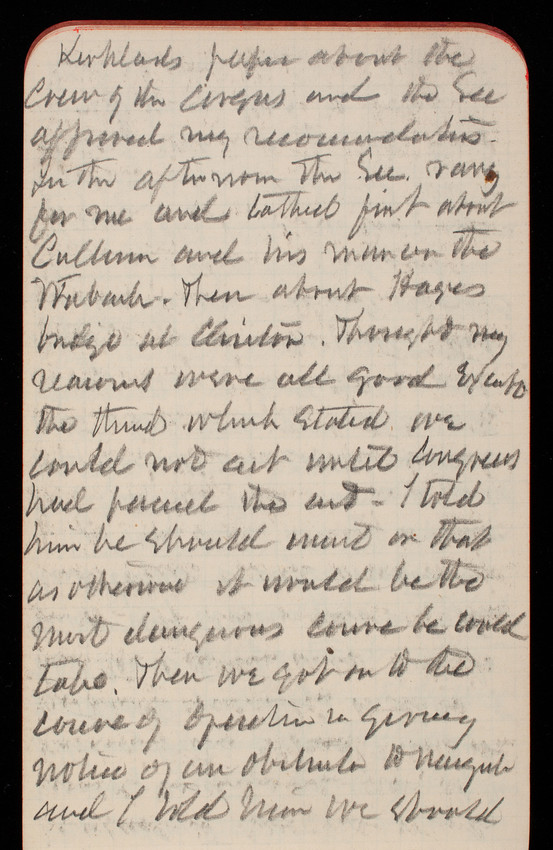 Kirklands paper about the
Crew of the Cirgus and the Sec
approved my recommendations.
In the afternoon the Sec. rang
for me and talked first about
and his man on the
Wabash. Then about Hayes
bridge at Clinton. Thought my
reasons were all good except
the third which stated we
could not act until Congress
had passed the act - I told
him he should insist on that
as otherwise it would be the
most dangerous course he could
take. Then we got on to the
course of operation in giving
notice of an obstacle to
and I told him we should